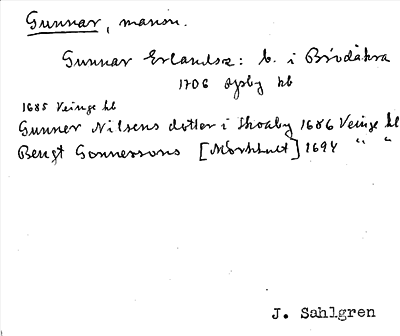 Gunnar, mansn.
Gunnar Erlandsn: b. i Brödåkra
1706 Ysby kb
1685 Veinge kb
Gunner Nilsens dotter i Skoaby 1686 Veinge kb
Bengt Gonnersons [Mörkhult] 1694 " "
J. Sahlgren